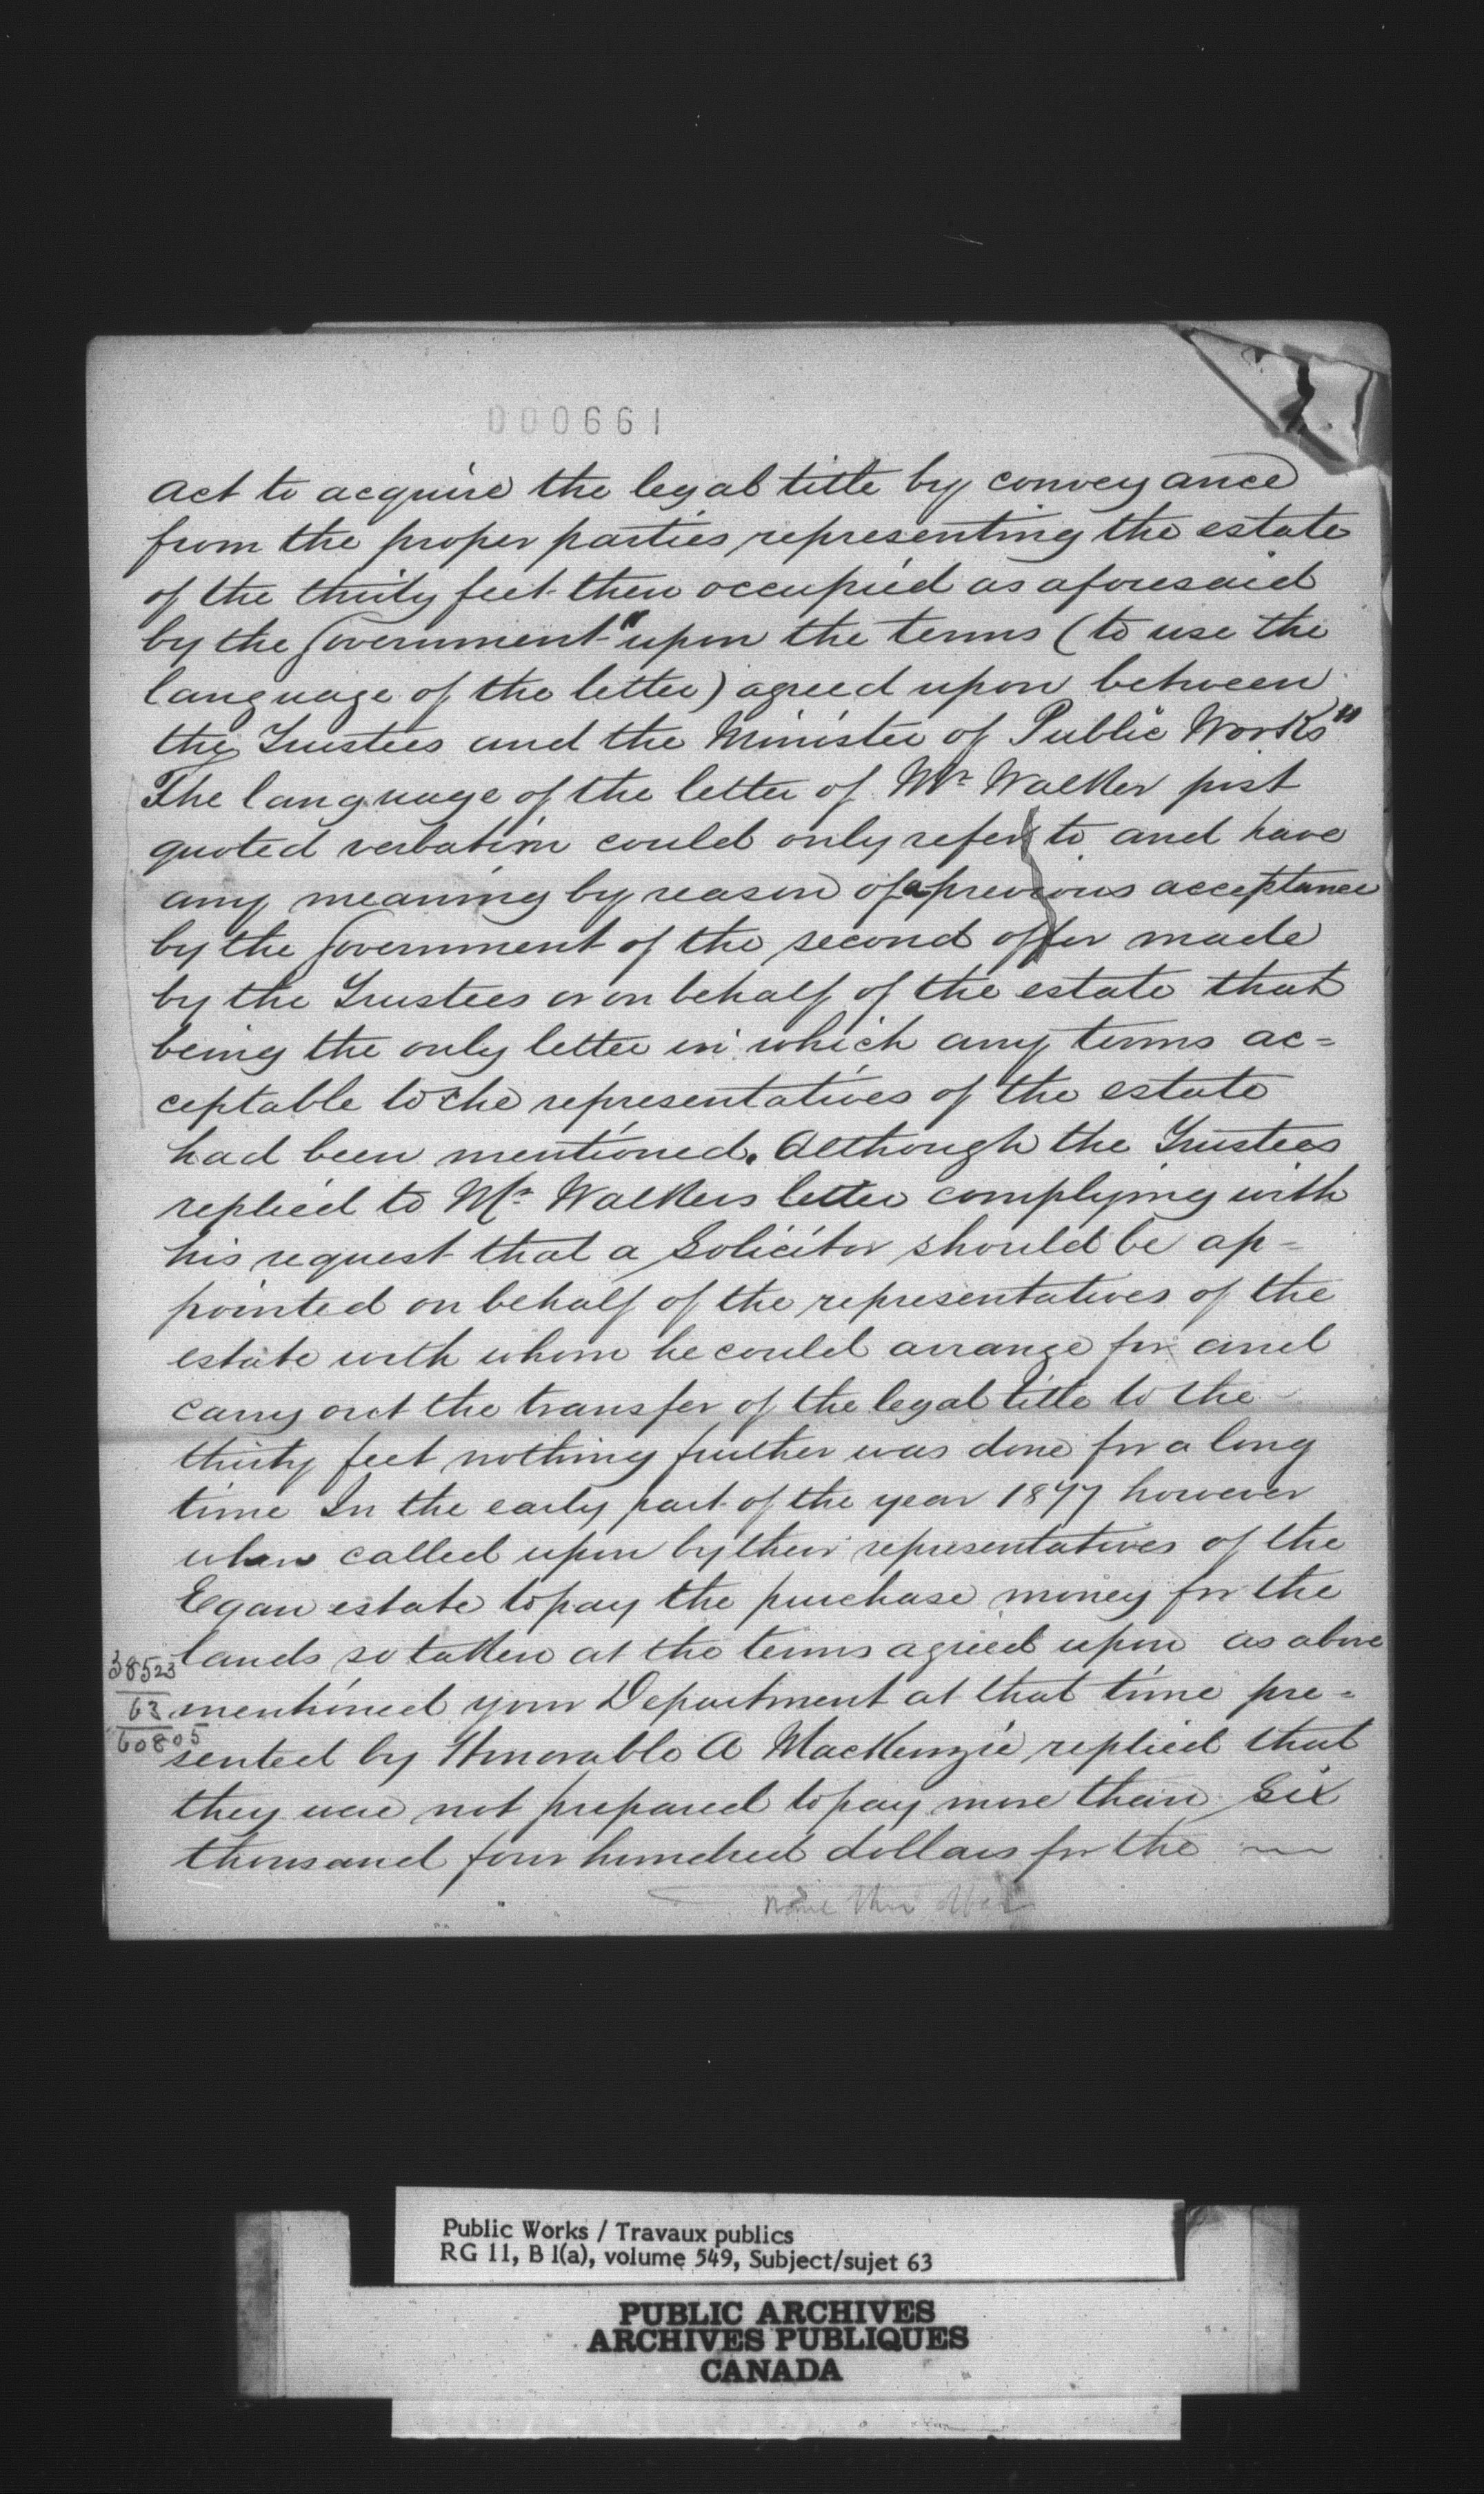 000661
act to acquire the legal title by conveyance
from the proper parties representing the estate
of the thirty feet then occupied as aforesaid
by the Government "upon the terms (to use the
language of the letter) agreed upon between
the Trustees and the Minister of Public Works"
The language of the letter of Mr Walker just
quoted verbatim could only refer to and have
any meaning by reason of a previous acceptance
by the Government of the second offer made
by the Trustees or on behalf of the estate that
being the only letter in which any terms ac=
ceptable to the representatives of the estate
had been mentioned. Although the Trustees
replied to Mr Walkers letter complying with
his request that a Solicitor should be ap=
pointed on behalf of the representatives of the
estate with whom he could arrange for and
carry out the transfer of the legal title to the
thirty feet nothing further was done for a long
time In the early part of the year 1877 however
when called upon by their representatives of the
Egan estate to pay the purchase money for the
lands so taken at the terms agreed upon as above
38523
63
60805
mentioned your Department at that time pre=
sented by Honorable A MacKenzie replied that
they were not prepared to pay more than six
thousand four hundred dollars for the
Public Works / Travaux publics
RG 11, B 1(a), volume 549, Subject/sujet 63
PUBLIC ARCHIVES
ARCHIVES PUBLIQUES
CANADA